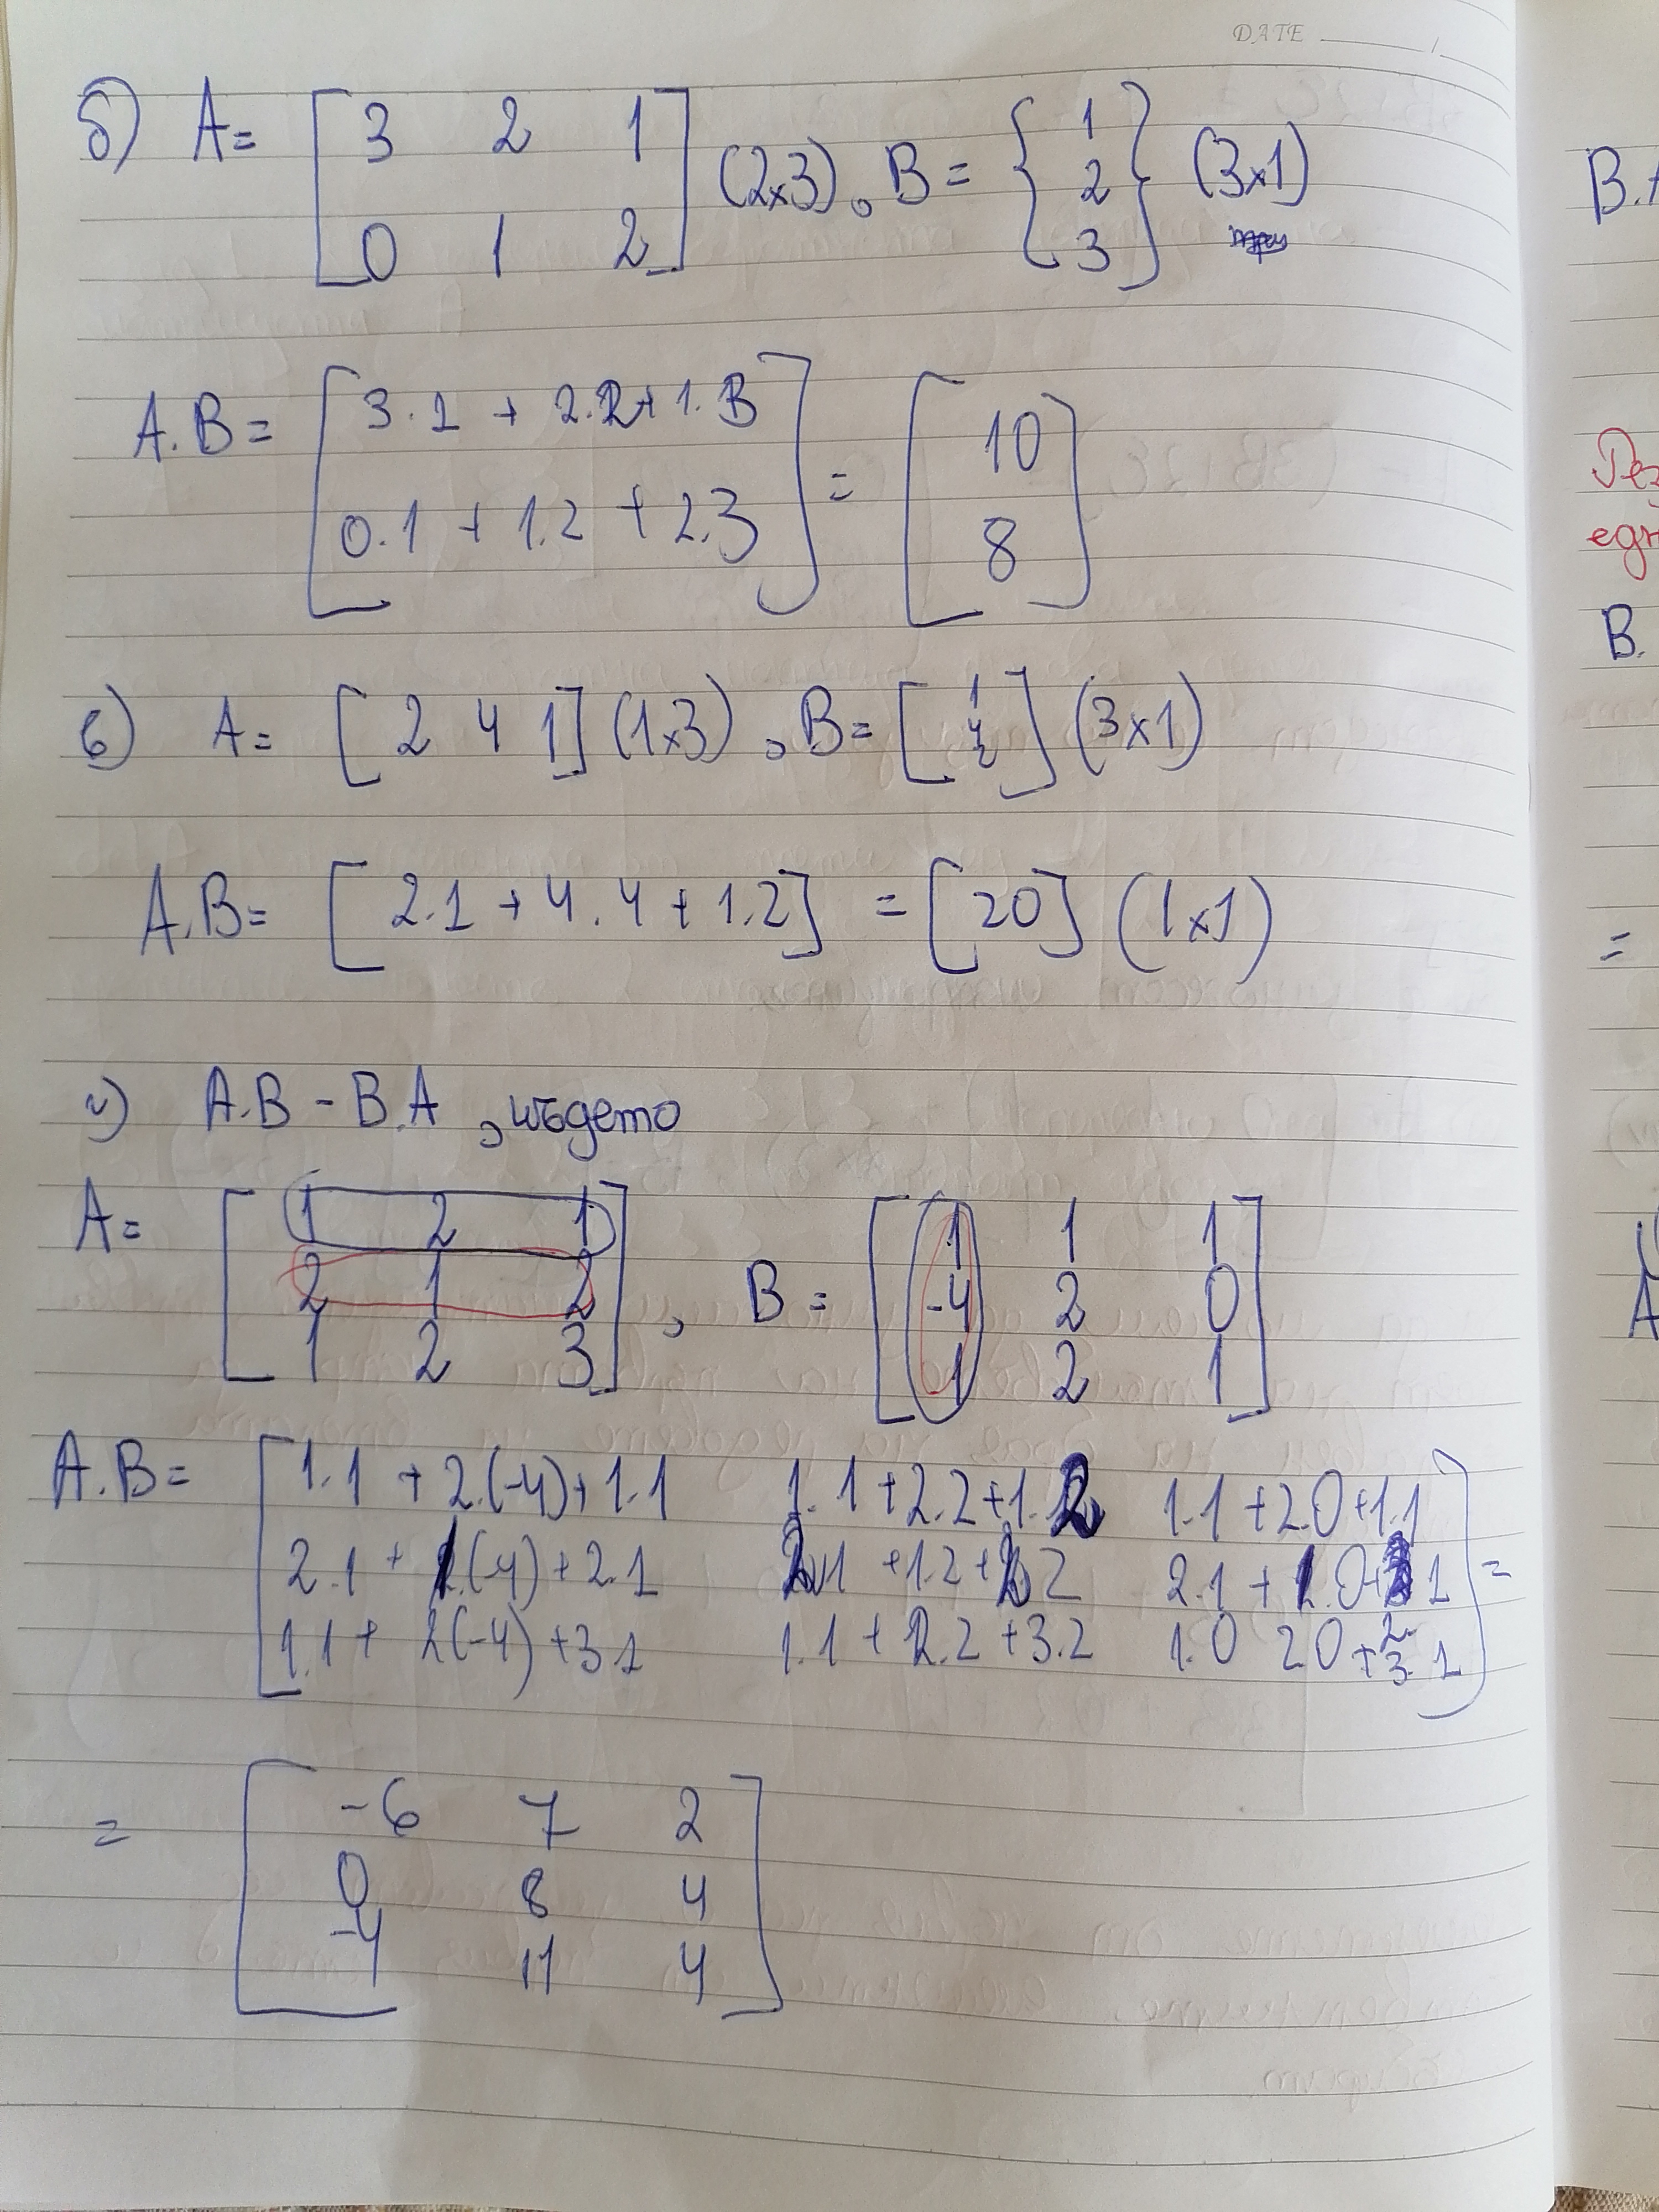 DATE
б) A = [ 3 2 1
0 1 2 ] (2x3), B = { 1
2
3 } (3x1)
A.B = [ 3.1 + 2.2 + 1.3
0.1 + 1.2 + 2.3 ] = [ 10
8 ]
в) A = [ 2 4 1 ] (1x3), B = [ 1
4
2 ] (3x1)
A.B = [ 2.1 + 4.4 + 1.2 ] = [20] (1x1)
г) A.B - B.A , където
A = [ 1 2 1
2 1 2
1 2 3 ] , B = [ 1 1 1
-4 2 0
1 2 1 ]
A.B = [ 1.1 + 2.(-4) + 1.1 1.1 + 2.2 + 1.2 1.1 + 2.0 + 1.1
2.1 + 1.(-4) + 2.1 2.1 + 1.2 + 2.2 2.1 + 1.0 + 1
1.1 + 2(-4) + 3.1 1.1 + 2.2 + 3.2 1.0 2.0 + 3.1 ] =
= [ -6 7 2
0 8 4
-4 11 4 ]
B.
B.
=
A